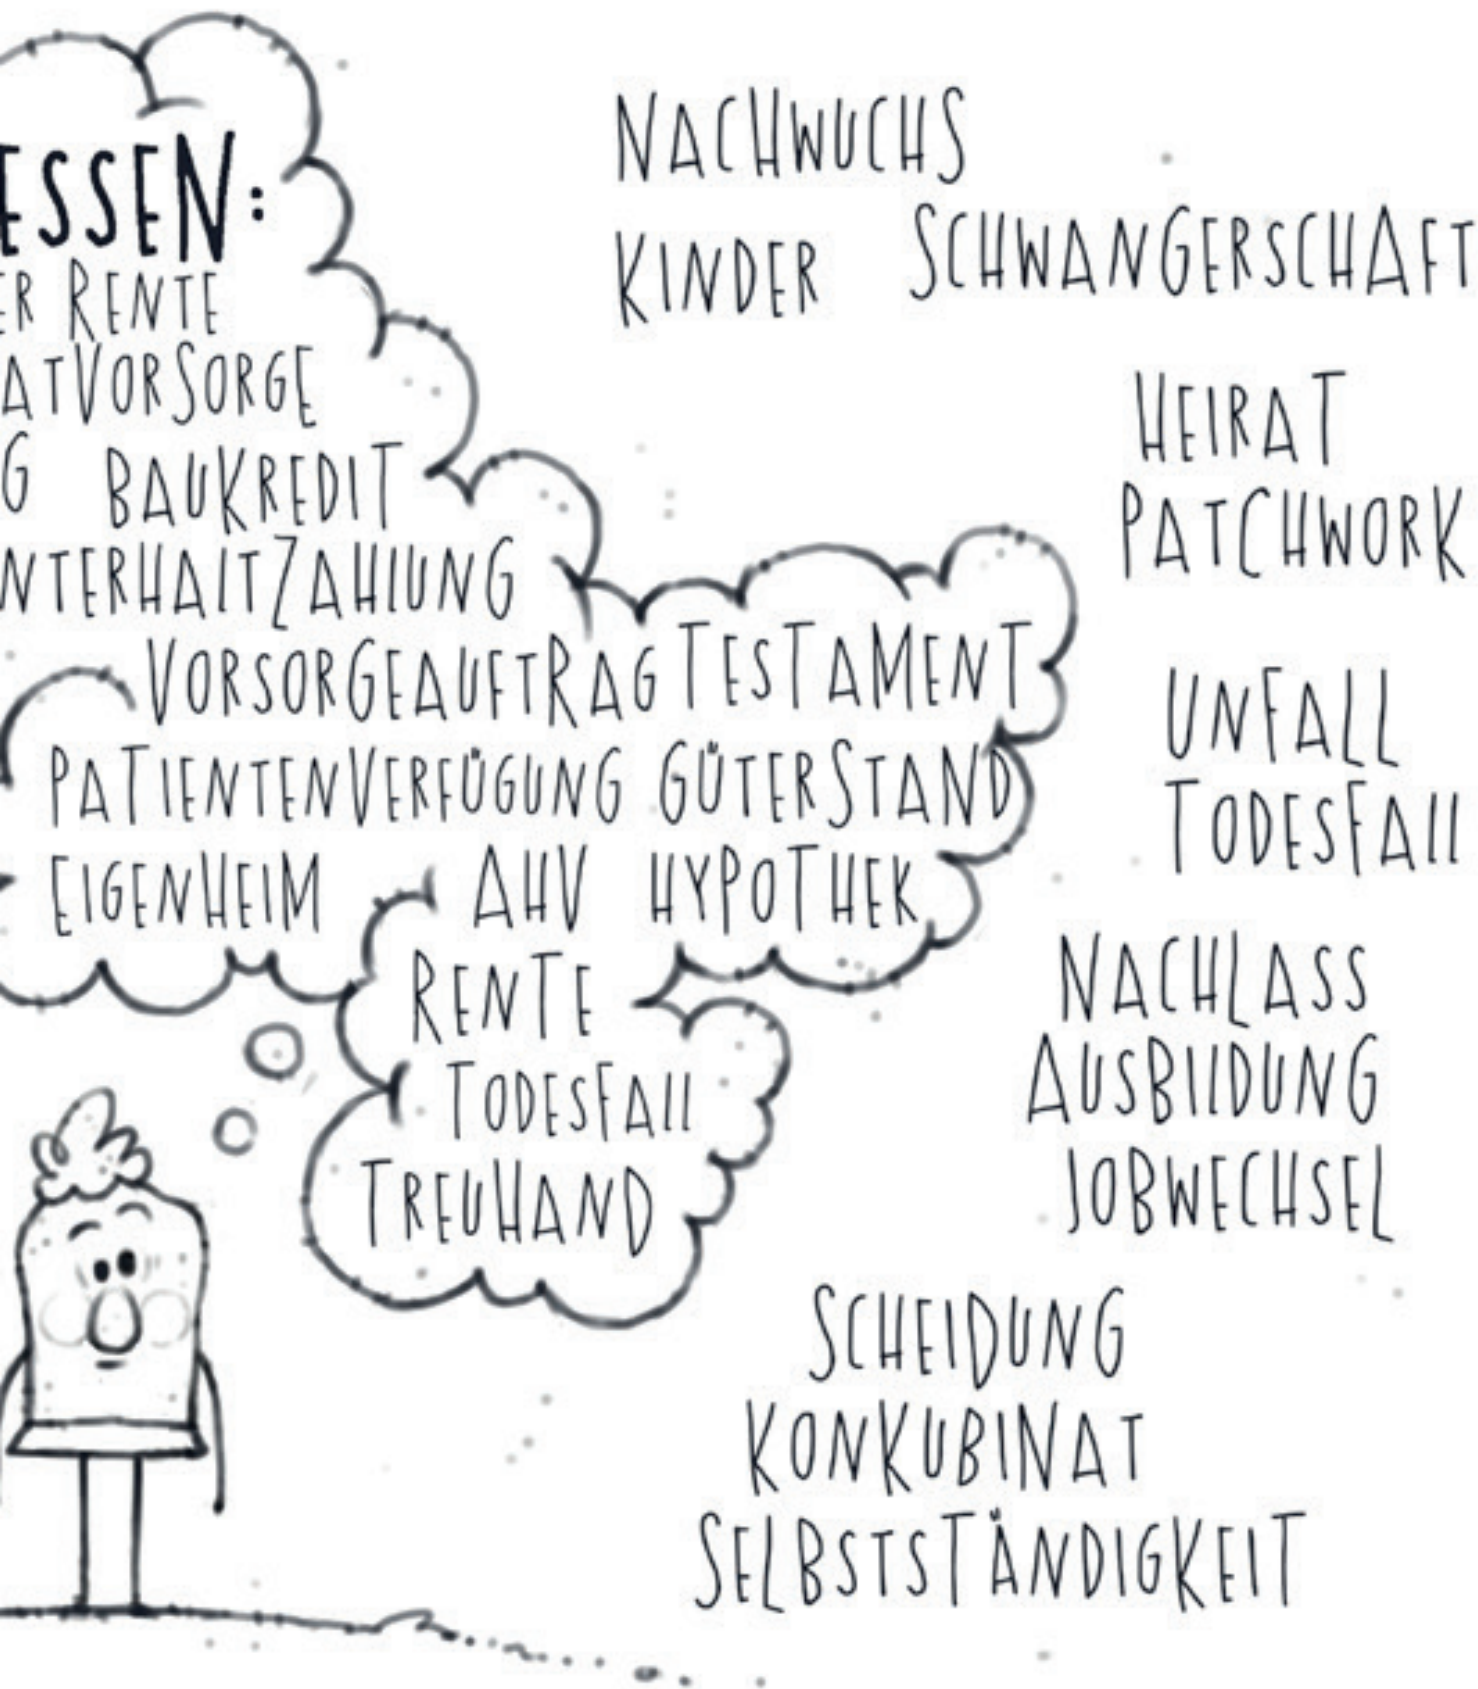 ESSEN:
ER RENTE
ATVORSORGE
G BAUKREDIT
NTERHALTZAHLUNG
VORSORGEAUFTRAG TESTAMENT
PATIENTENVERFÜGUNG GÜTERSTAND
EIGENHEIM AHV HYPOTHEK
RENTE
TODESFALL
TREUHAND
NACHWUCHS
KINDER SCHWANGERSCHAFT
HEIRAT
PATCHWORK
UNFALL
TODESFALL
NACHLASS
AUSBILDUNG
JOBWECHSEL
SCHEIDUNG
KONKUBINAT
SELBSTSTÄNDIGKEIT